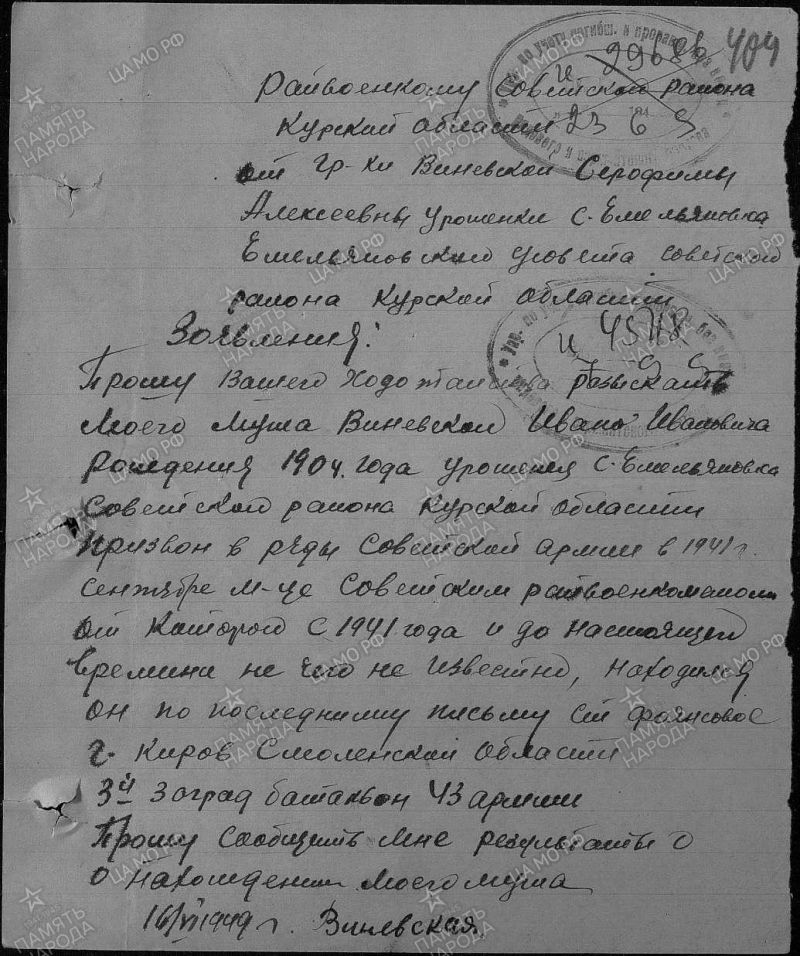 404
29686
23 6 9
Райвоенкому Советской района
Курской области
от гр-ки Виневской Серофимы
Алексеевны урошенки с. Емельяновка
Емельяновский с/совета Советской
района Курской области
Заевления:
45718
Прошу Вашего ходотайства разыскать
Моего Мужа Виневской Ивано Ивановича
рождения 1904. года урошеня с. Емельяновка
Советской района Курской области
призвон в ряды Советской армии в 1941 г.
сентябре м-це Советским райвоенкоматом
от Которого с 1941 года и до настоящей
времина не чего не известно, находился
он по последнему письму ст Фаянсовое
г. Киров Смоленской области
3й Заград батальон 43 армии
Прошу сообщить мне результаты о
о нахождении моего мужа
16/VI 1949 г. Виневская
ПАМЯТЬ НАРОДА
ЦАМО.РФ